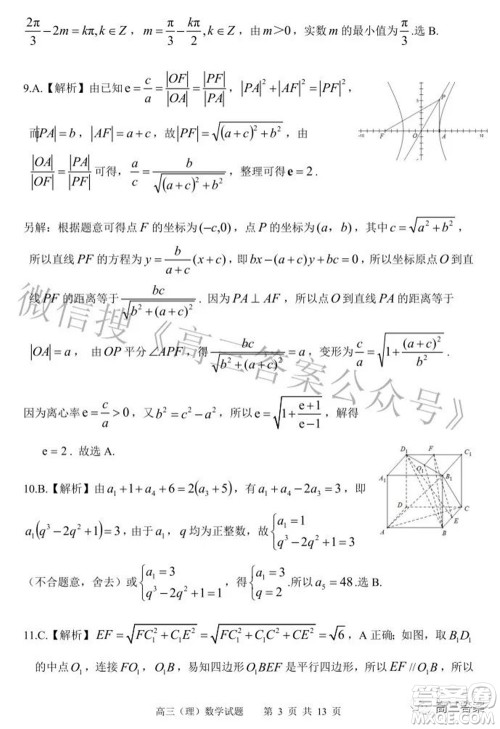 $\frac{2\pi}{3}-2m=k\pi,k\in Z$，$m=\frac{\pi}{3}-\frac{k\pi}{2},k\in Z$，由m＞0，实数m的最小值为$\frac{\pi}{3}$.选B.
9.A.【解析】由已知$e=\frac{c}{a}=\frac{|OF|}{|OA|}=\frac{|PF|}{|PA|}$，$|PA|^2+|AF|^2=|PF|^2$，
而$|PA|=b$，$|AF|=a+c$，故$|PF|=\sqrt{(a+c)^2+b^2}$，由
$\frac{|OA|}{|OF|}=\frac{|PA|}{|PF|}$可得，$\frac{a}{c}=\frac{b}{\sqrt{(a+c)^2+b^2}}$，整理可得e＝2．
另解：根据题意可得点F的坐标为(−c,0)，点P的坐标为(a，b)，其中$c=\sqrt{a^2+b^2}$，
所以直线PF的方程为$y=\frac{b}{a+c}(x+c)$，即$bx-(a+c)y+bc=0$，所以坐标原点O到直
线PF的距离等于$\frac{bc}{\sqrt{b^2+(a+c)^2}}$．因为PA⊥AF，所以坐标原点O到直线PA的距离等于
$|OA|=a$，由OP平分∠APF，得$\frac{bc}{\sqrt{b^2+(a+c)^2}}=a$，变形为$\frac{c}{a}=\sqrt{1+\frac{(a+c)^2}{b^2}}$．
因为离心率$e=\frac{c}{a}>0$，又$b^2=c^2-a^2$，所以$e=\sqrt{1+\frac{e+1}{e-1}}$，解得
e＝2．故选A.
10.B.【解析】由$a_1+1+a_4+6=2(a_3+5)$，有$a_1+a_4-2a_3=3$，即
$a_1(q^3-2q^2+1)=3$，由于$a_1$，q均为正整数，故$\begin{cases}a_1=1\\q^3-2q^2+1=3\end{cases}$
(不合题意，舍去）或$\begin{cases}a_1=3\\q^3-2q^2+1=1\end{cases}$，得$\begin{cases}a_1=3\\q=2\end{cases}$.所以$a_5=48$.选B.
11.C.【解析】$EF=\sqrt{FC_1^2+C_1E^2}=\sqrt{FC_1^2+CC_1^2+CE^2}=\sqrt{6}$，A正确；如图，取$B_1D_1$
的中点$O_1$，连接$FO_1$，$O_1B$，易知四边形$O_1BEF$是平行四边形，所以$EF//O_1B$，所以
高三（理）数学试题 第 3 页 共 13 页
微信搜《高三答案公众号》
高三答案